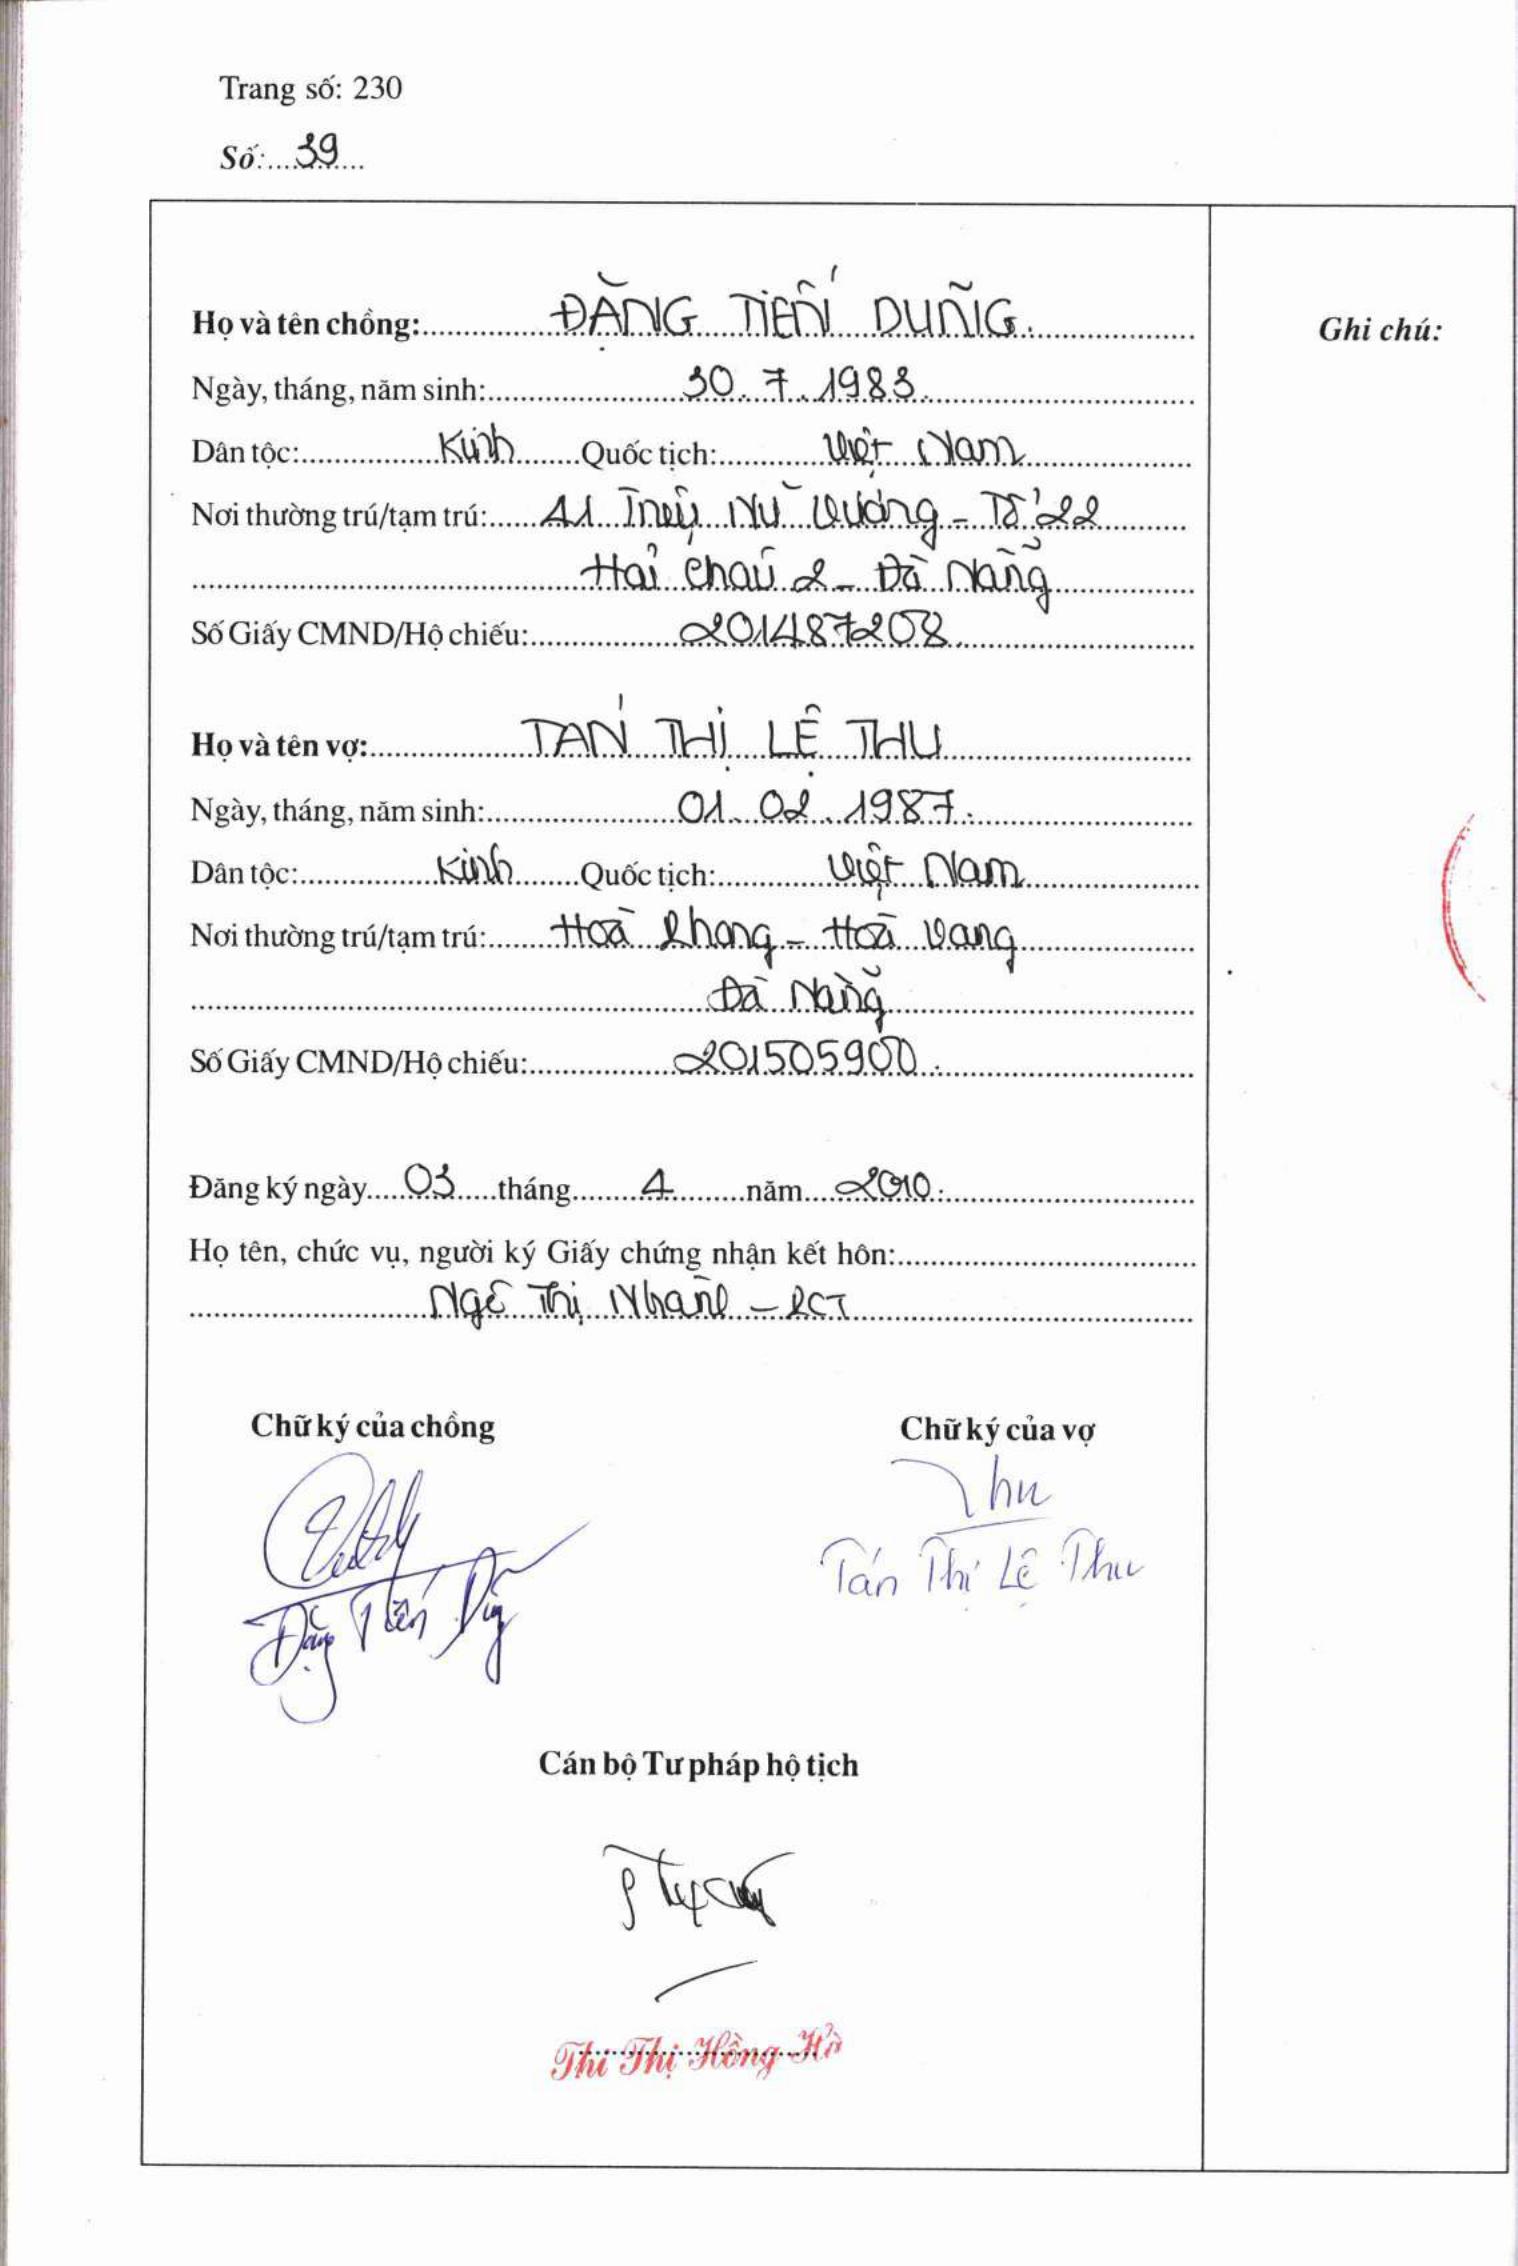 Trang số: 230
Số: 39
Họ và tên chồng: ĐẶNG TIẾN DŨNG
Ghi chú:
Ngày, tháng, năm sinh: 30.7.1983
Dân tộc: Kinh Quốc tịch: Việt Nam
Nơi thường trú/tạm trú: 41 Triệu Nữ Vương - Tổ 22
Hải Châu 2 - Đà Nẵng
Số Giấy CMND/Hộ chiếu: 201487208
Họ và tên vợ: TÁN THỊ LỆ THU
Ngày, tháng, năm sinh: 01.02.1987
Dân tộc: Kinh Quốc tịch: Việt Nam
Nơi thường trú/tạm trú: Hoà Phong - Hoà Vang
Đà Nẵng
Số Giấy CMND/Hộ chiếu: 201505900
Đăng ký ngày 03 tháng 4 năm 2010
Họ tên, chức vụ, người ký Giấy chứng nhận kết hôn:
Ngô Thị Nhanh - PCT
Chữ ký của chồng
Chữ ký của vợ
Thu
Đặng Tiến Dũng
Tán Thị Lệ Thu
Cán bộ Tư pháp hộ tịch
Thi Thị Hồng Hà